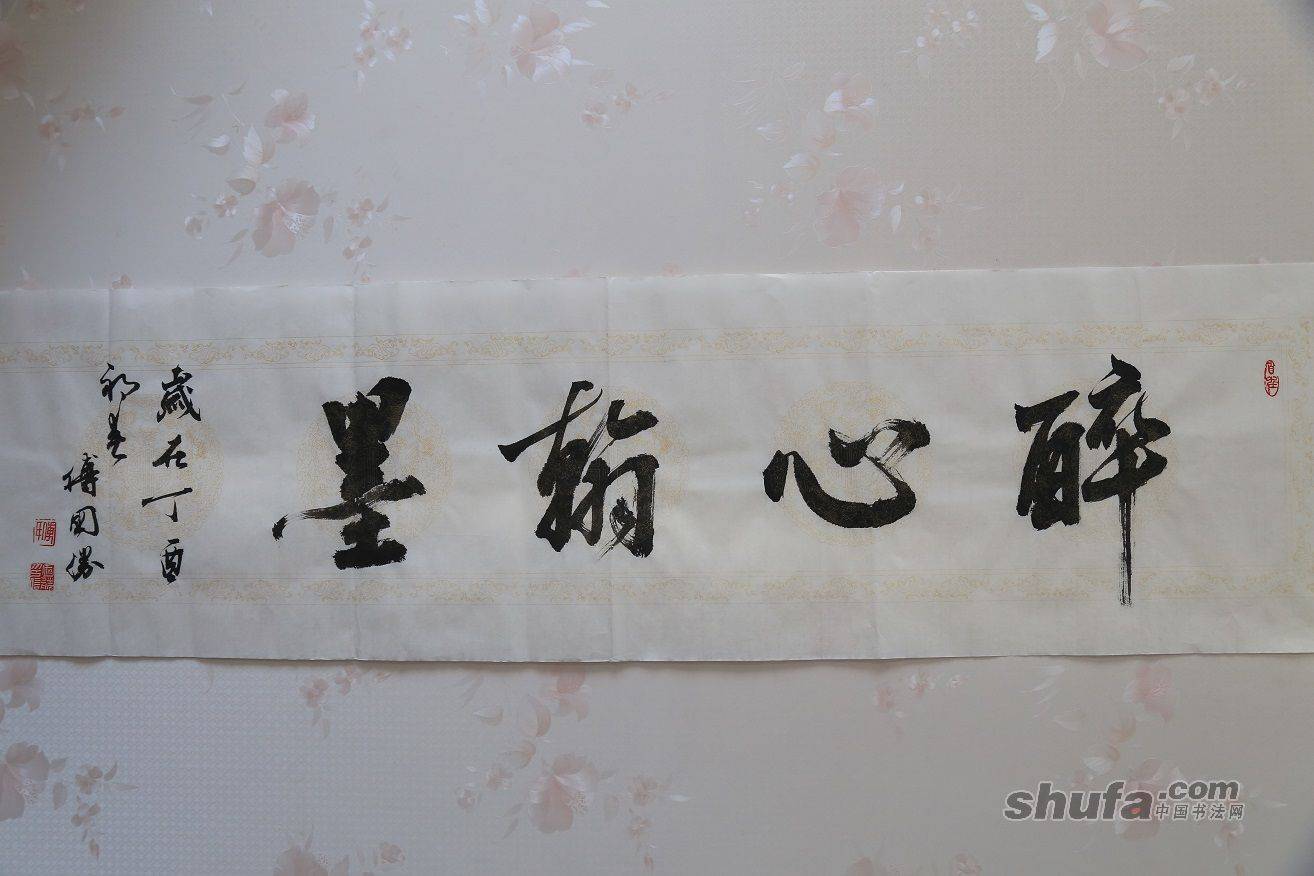 醉心翰墨
歲在丁酉
初春
傅國勝
shufa.com
中国书法网